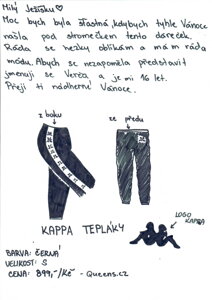 Milý Ježíšku♡
Moc bych byla šťastná, kdybych tyhle Vánoce
našla pod stromečkem tento dáreček.
Ráda se hezky oblíkám a mám ráda
módu. Abych se nezapoměla představit
jmenuji se Verča a je mi 16 let.
Přeji ti nádherné Vánoce.
z boku
ze předu
KAPPA TEPLÁKY
LOGO
KAPPA
BARVA: ČERNÁ
VELIKOST: S
CENA: 899,-/Kč - Queens.cz